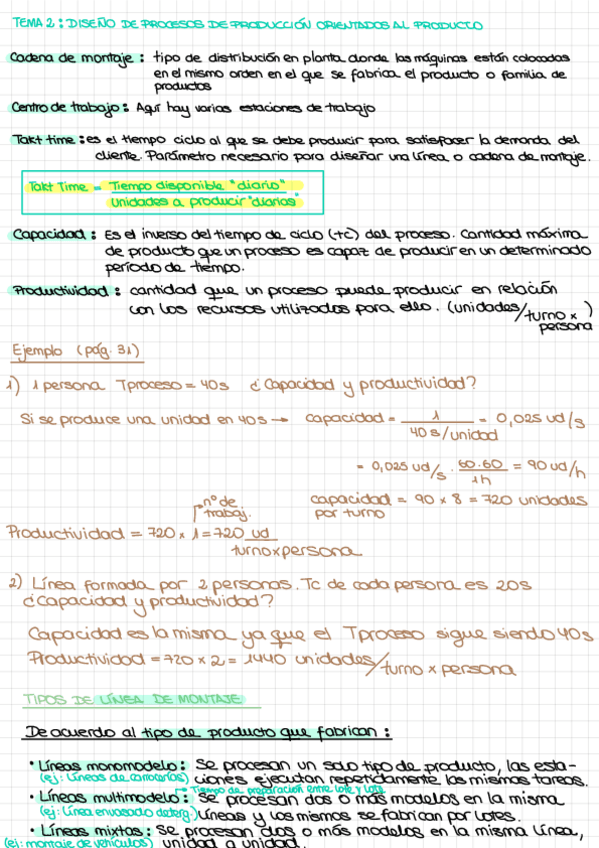 TEMA 2: DISEÑO DE PROCESOS DE PRODUCCIÓN ORIENTADOS AL PRODUCTO
Cadena de montaje: tipo de distribución en planta donde las máquinas están colocadas
en el mismo orden en el que se fabrica el producto o familia de
productos
Centro de trabajo: Aquí hay varias estaciones de trabajo
Takt time: es el tiempo ciclo al que se debe producir para satisfacer la demanda del
cliente. Parámetro necesario para diseñar una línea o cadena de montaje.
Takt Time = Tiempo disponible "diario"
Unidades a producir "diarias"
Capacidad: Es el inverso del tiempo de ciclo (tc) del proceso. Cantidad máxima
de producto que un proceso es capaz de producir en un determinado
período de tiempo.
Productividad: cantidad que un proceso puede producir en relación
con los recursos utilizados para ello. (unidades/turno x persona)
Ejemplo (pág. 31)
1) 1 persona Tproceso = 40s ¿Capacidad y productividad?
Si se produce una unidad en 40s → capacidad = 1 / 40 s/unidad = 0,025 ud/s
= 0,025 ud/s · 60·60 / 1h = 90 ud/h
nº de trabaj.
capacidad por turno = 90 x 8 = 720 unidades
Productividad = 720 x 1 = 720 ud / turno x persona
2) Línea formada por 2 personas. Tc de cada persona es 20s
¿Capacidad y productividad?
Capacidad es la misma ya que el Tproceso sigue siendo 40s
Productividad = 720 x 2 = 1440 unidades/turno x persona
TIPOS DE LÍNEA DE MONTAJE
De acuerdo al tipo de producto que fabrican:
• Líneas monomodelo: Se procesan un solo tipo de producto, las esta-
(ej: Líneas de carrocerías) ciones ejecutan repetidamente las mismas tareas.
→ Tiempo de preparación entre lote y lote
• Líneas multimodelo: Se procesan dos o más modelos en la misma
(ej: Línea envasado deterg.) Líneas y los mismos se fabrican por lotes.
• Líneas mixtas: Se procesan dos o más modelos en la misma línea,
(ej: montaje de vehículos) unidad a unidad.